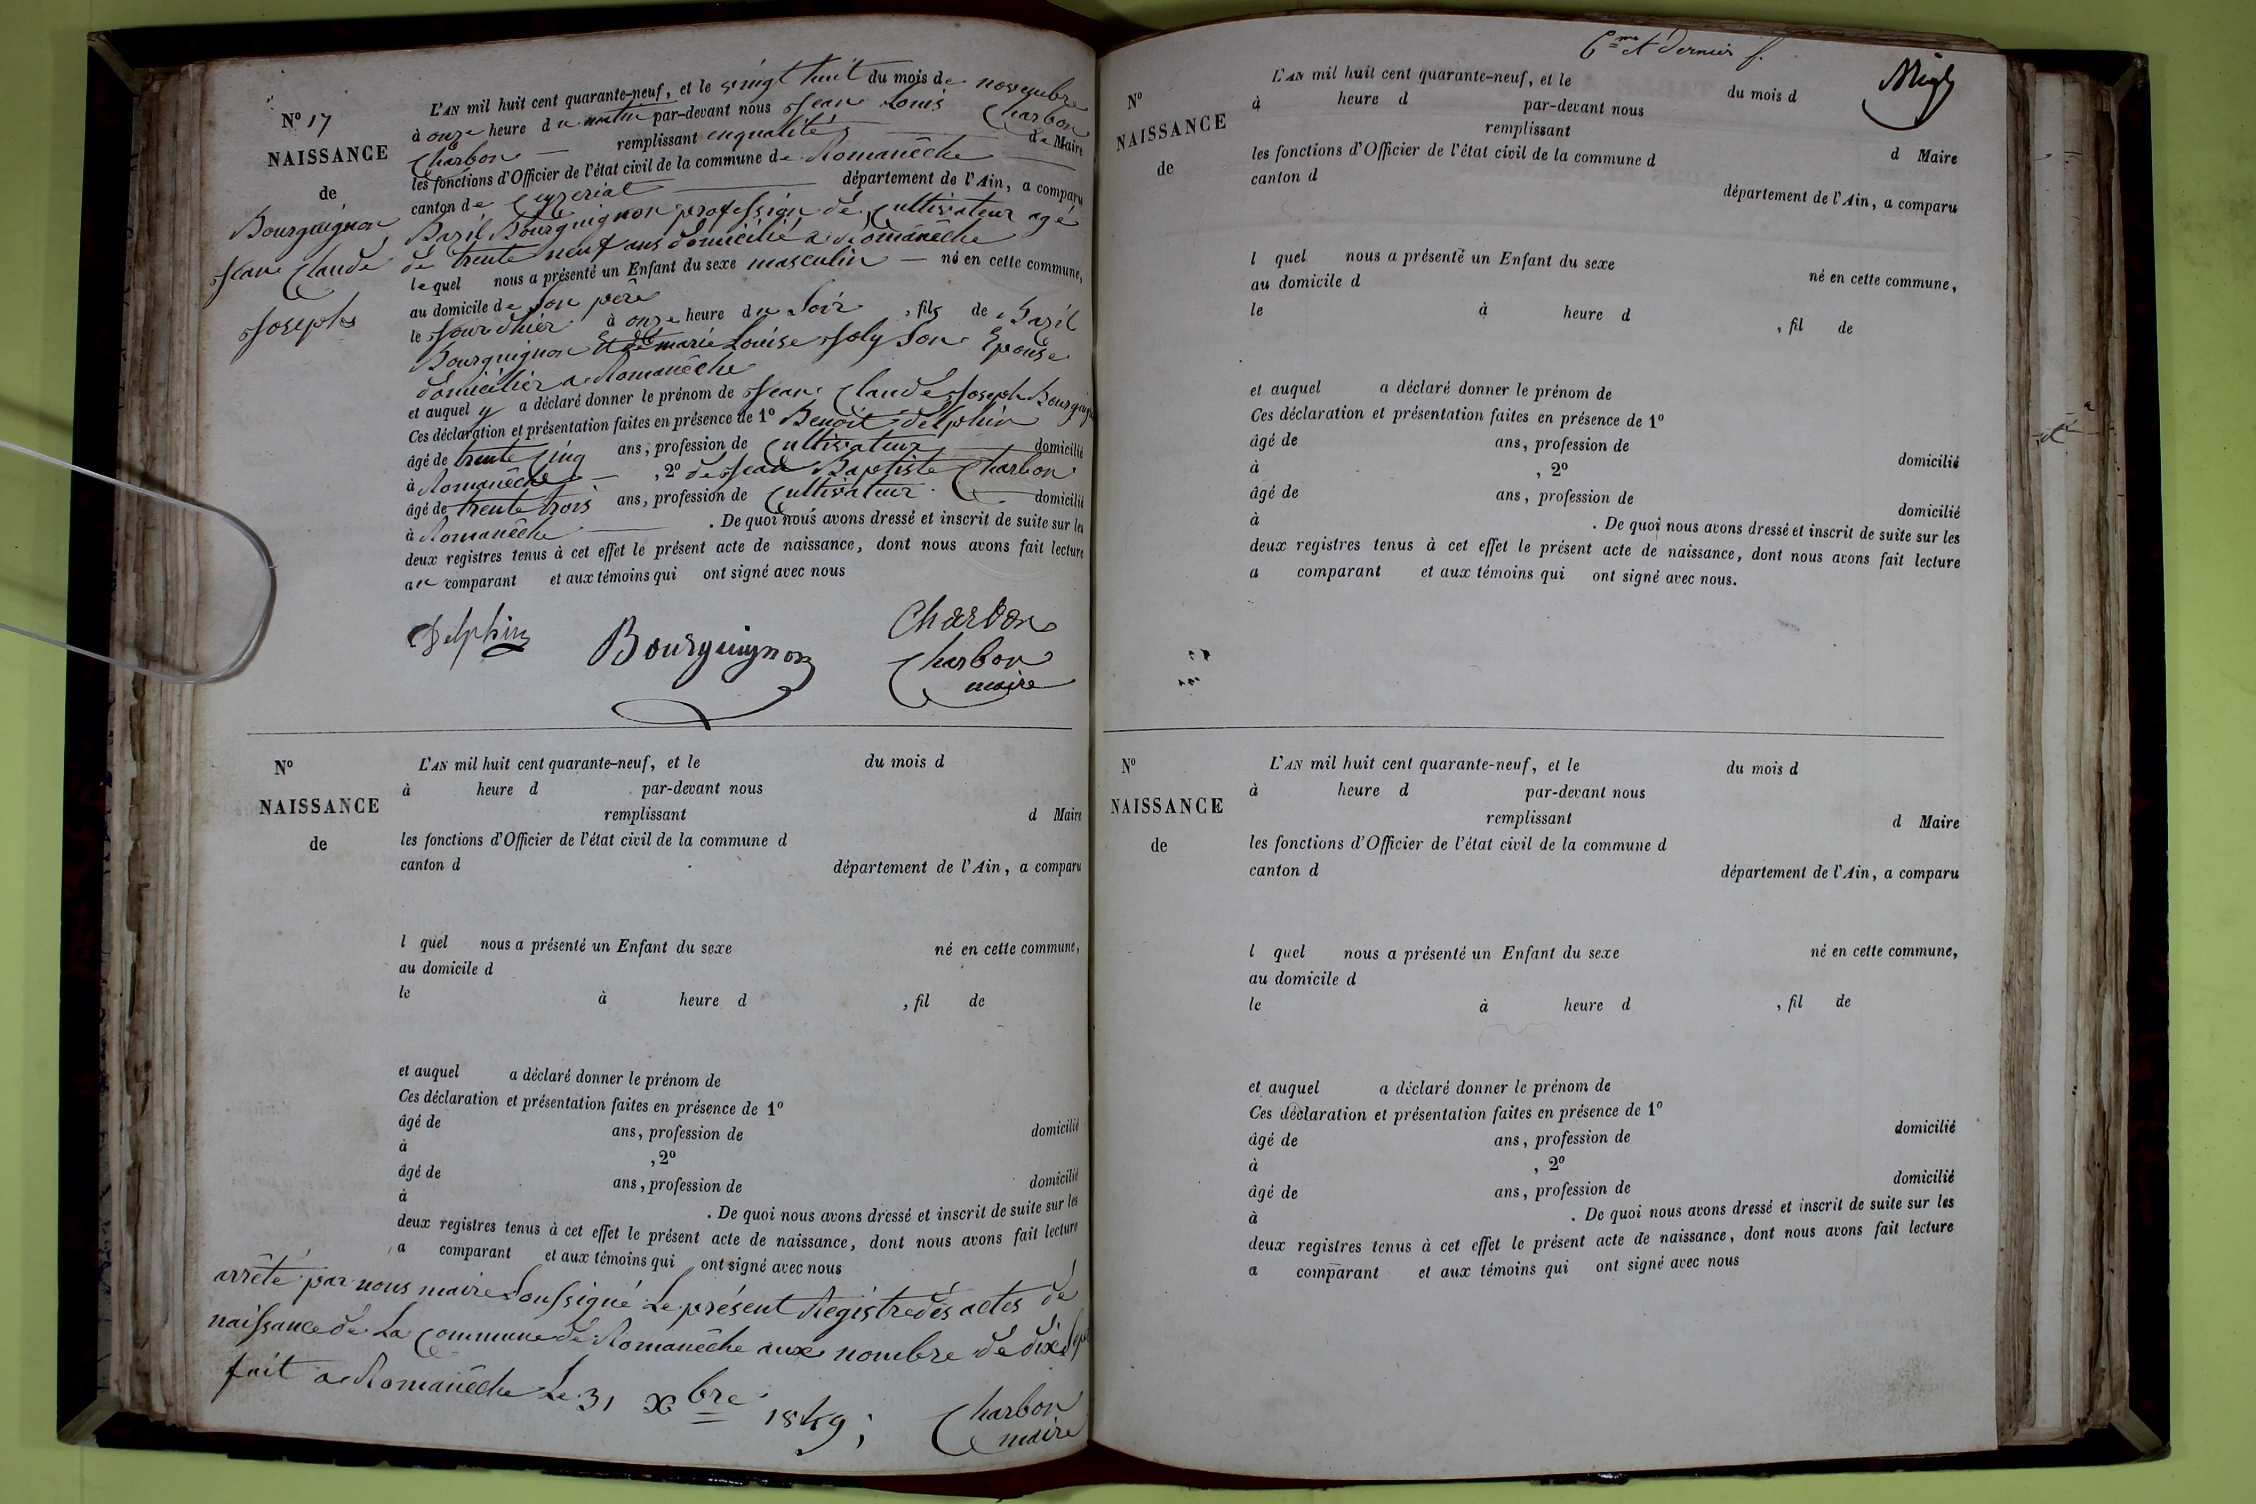 N° 17
NAISSANCE
de
Bourguignon
Jean Claude
Joseph
L'AN mil huit cent quarante-neuf, et le vingt huit du mois de novembre
à onze heure du matin par-devant nous Jean Louis Charbon
Charbon remplissant enqualité de Maire
les fonctions d'Officier de l'état civil de la commune de Romanêche
canton de Ceyzeriat département de l'Ain, a comparu
Bazil Bourguignon profession de Cultivateur agé
de trente neuf ans domicilié a Romanêche
lequel nous a présenté un Enfant du sexe masculin né en cette commune,
au domicile de Son père
le Jour d'hier à onze heure du Soir, fils de Bazil
Bourguignon Et de marie Louise Joly Son Epouse
domicilier a Romanêche
et auquel y a déclaré donner le prénom de Jean Claude Joseph
Ces déclaration et présentation faites en présence de 1° Benoit delphin
âgé de trente Cinq ans, profession de Cultivateur domicilié
à Romanêche, 2° de Jean Baptiste Charbon
âgé de trente trois ans, profession de Cultivateur domicilié
à Romanêche. De quoi nous avons dressé et inscrit de suite sur les
deux registres tenus à cet effet le présent acte de naissance, dont nous avons fait lecture
au comparant et aux témoins qui ont signé avec nous
Delphin Bourguignon Charbon
Charbon
maire
N°
NAISSANCE
de
L'AN mil huit cent quarante-neuf, et le du mois d
à heure d par-devant nous
remplissant d Maire
les fonctions d'Officier de l'état civil de la commune d
canton d département de l'Ain, a comparu
l quel nous a présenté un Enfant du sexe né en cette commune,
au domicile d
le à heure d , fil de
et auquel a déclaré donner le prénom de
Ces déclaration et présentation faites en présence de 1°
âgé de ans, profession de domicilié
à , 2°
âgé de ans, profession de domicilié
à . De quoi nous avons dressé et inscrit de suite sur les
deux registres tenus à cet effet le présent acte de naissance, dont nous avons fait lecture
a comparant et aux témoins qui ont signé avec nous
arrêté par nous maire Soussigné Le présent Registre dés actes dé
naissance dé La Commune dé Romanêche aux nombre de dix Sept
fait a Romanêche Le 31 Xbre 1849;
Charbon
maire
6me et dernier f.
N°
NAISSANCE
de
L'AN mil huit cent quarante-neuf, et le du mois d
à heure d par-devant nous
remplissant d Maire
les fonctions d'Officier de l'état civil de la commune d
canton d département de l'Ain, a comparu
l quel nous a présenté un Enfant du sexe né en cette commune,
au domicile d
le à heure d , fil de
et auquel a déclaré donner le prénom de
Ces déclaration et présentation faites en présence de 1°
âgé de ans, profession de domicilié
à , 2°
âgé de ans, profession de domicilié
à . De quoi nous avons dressé et inscrit de suite sur les
deux registres tenus à cet effet le présent acte de naissance, dont nous avons fait lecture
a comparant et aux témoins qui ont signé avec nous.
N°
NAISSANCE
de
L'AN mil huit cent quarante-neuf, et le du mois d
à heure d par-devant nous
remplissant d Maire
les fonctions d'Officier de l'état civil de la commune d
canton d département de l'Ain, a comparu
l quel nous a présenté un Enfant du sexe né en cette commune,
au domicile d
le à heure d , fil de
et auquel a déclaré donner le prénom de
Ces déclaration et présentation faites en présence de 1°
âgé de ans, profession de domicilié
à , 2°
âgé de ans, profession de domicilié
à . De quoi nous avons dressé et inscrit de suite sur les
deux registres tenus à cet effet le présent acte de naissance, dont nous avons fait lecture
a comparant et aux témoins qui ont signé avec nous